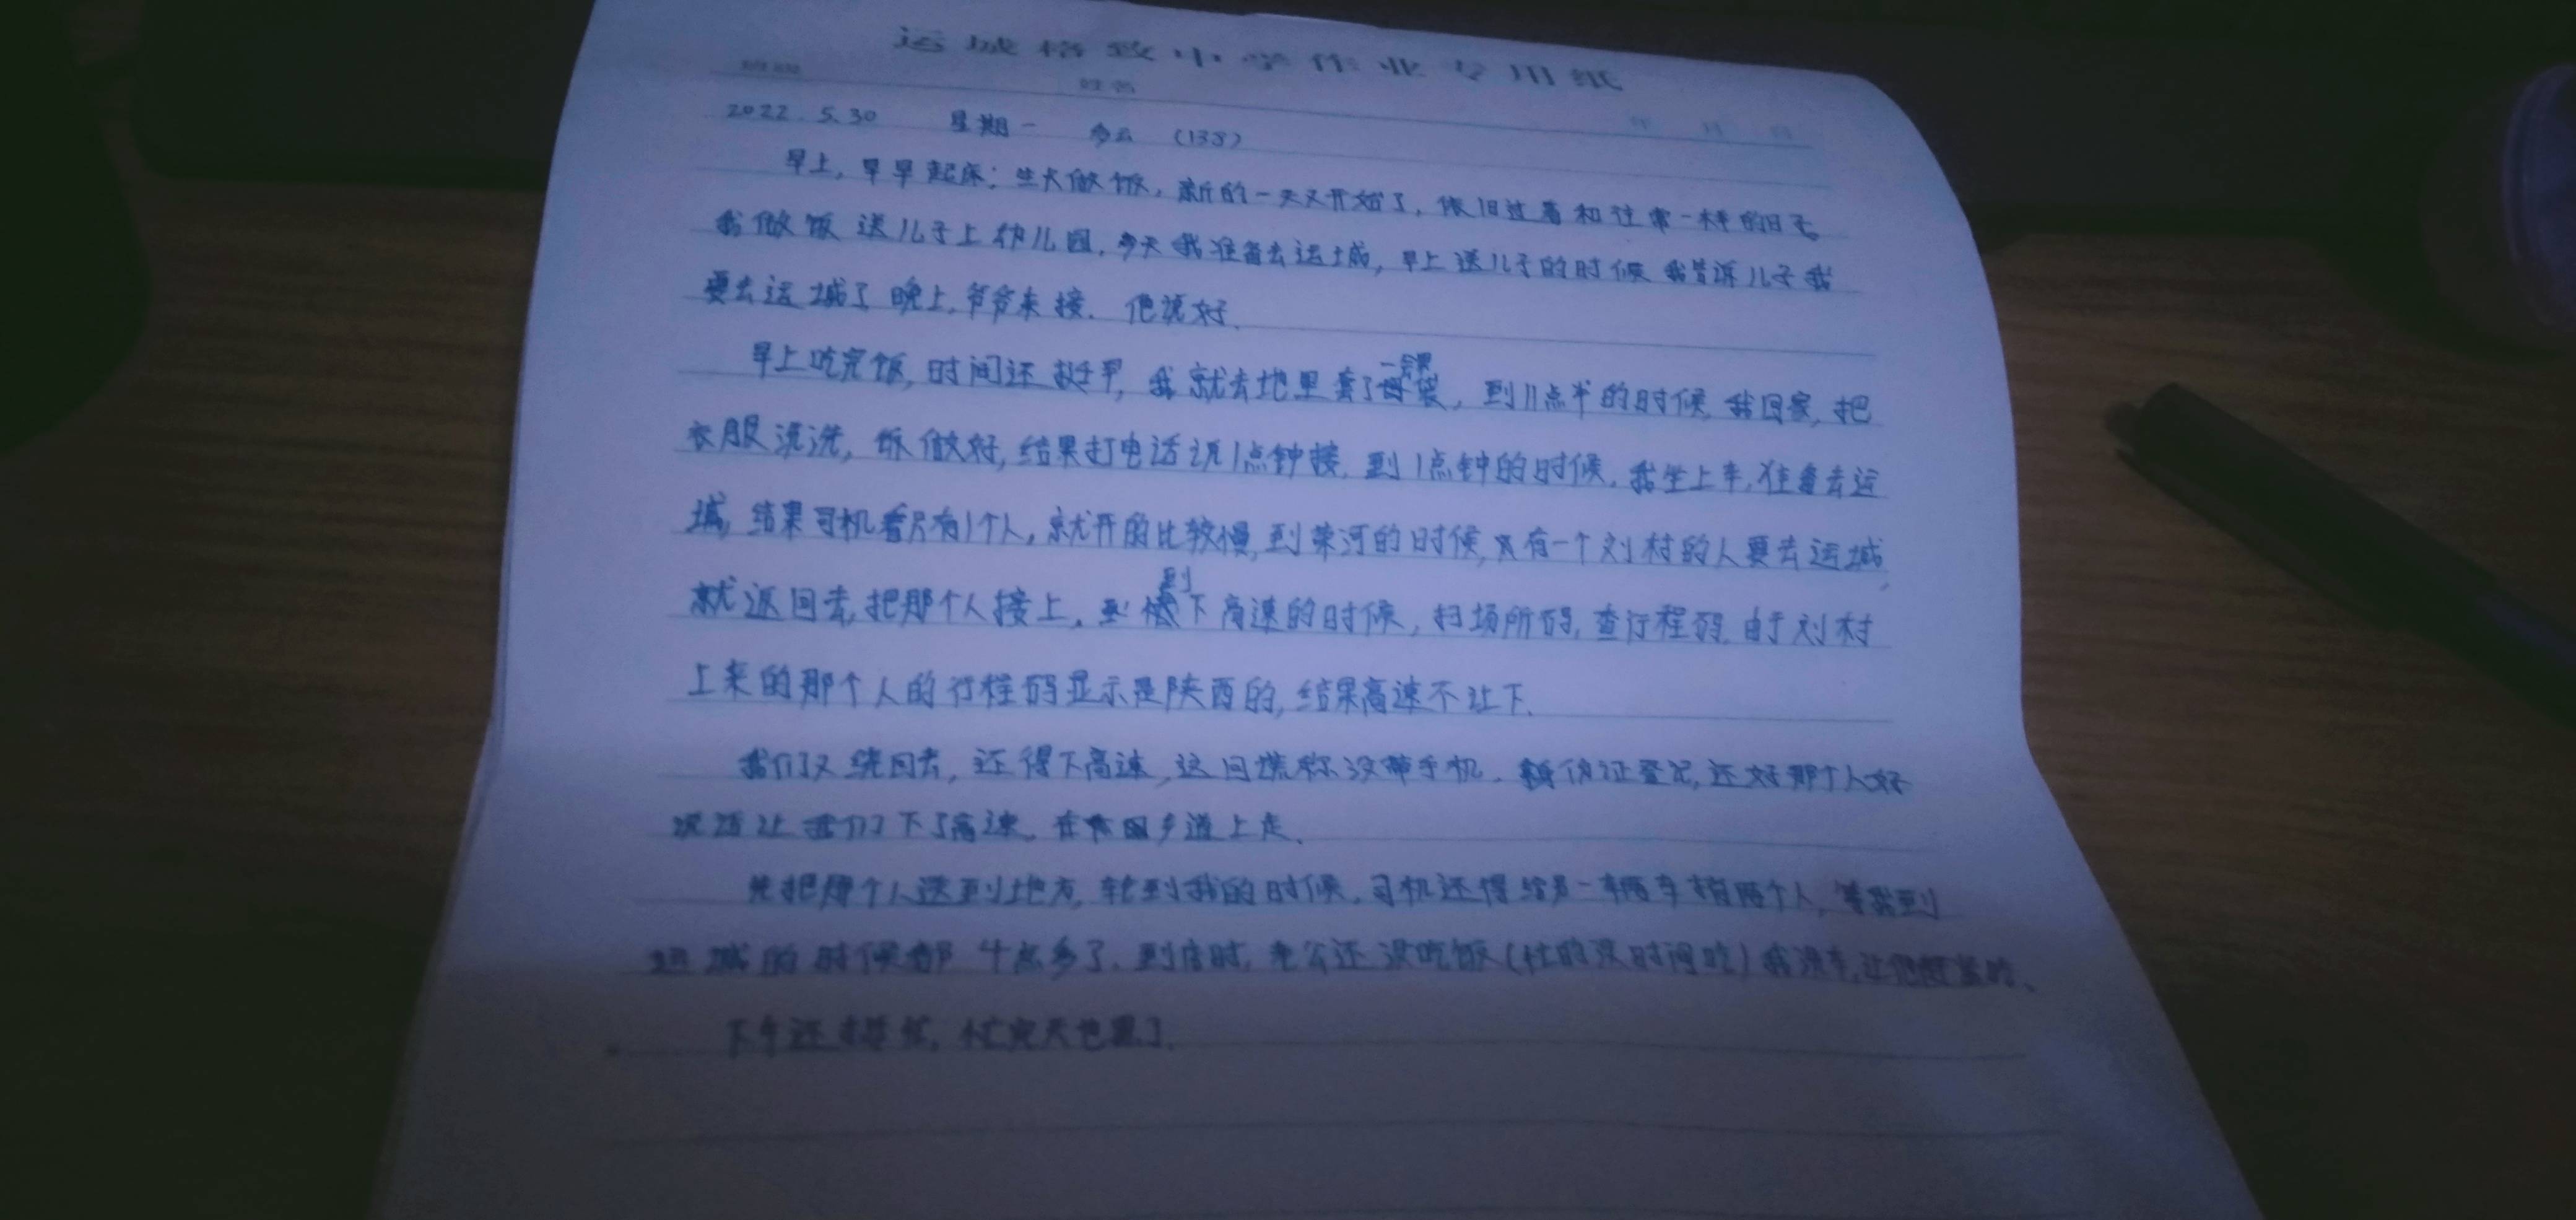 运城格致中学作业专用纸
班级 姓名 年 月 日
2022.5.30 星期一 多云 (138)
早上,早早起床;生火做饭,新的一天又开始了,依旧过着和往常一样的日子
我做饭送儿子上幼儿园,今天我准备去运城,早上送儿子的时候我告诉儿子我
要去运城了晚上,爷爷来接.他说好.
早上吃完饭,时间还挺早,我就去地里套了一会果袋,到11点半的时候,我回家,把
衣服洗洗,饭做好,结果打电话说1点钟接,到1点钟的时候,我坐上车,准备去运
城,结果司机看只有1个人,就开的比较慢,到荣河的时候,又有一个刘村的人要去运城,
就返回去,把那个人接上,到下高速的时候,扫场所码,查行程码,由于刘村
上来的那个人的行程码显示是陕西的,结果高速不让下.
我们又绕回去,还得下高速,这回谎称没带手机,身份证登记,还好那个人好
说话让我们下了高速,在乡道上走.
先把那个人送到地方,轮到我的时候,司机还得给另一辆车捎两个人,等我到
运城的时候都4点多了,到店时,老公还没吃饭(忙的没时间吃)我洗车,让他赶紧吃、
下午还挺忙,忙完天也黑了.